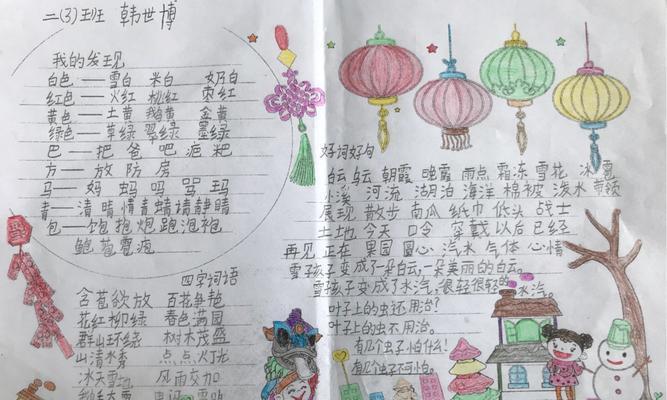 二(3)班 韩世博
我的发现
白色——雪白 米白 奶白
红色——火红 桃红 枣红
黄色——土黄 鹅黄 金黄
绿色——草绿 翠绿 墨绿
巴——把 爸 吧 疤 粑
方——放 防 房
马——妈 蚂 吗 骂 玛
青——清 晴 情 青 蜻 请 静 睛
包——饱 抱 炮 跑 泡 袍
鲍 苞 雹 疱
四字词语
含苞欲放 百花争艳
花红柳绿 春色满园
群山环绕 树木茂盛
山清水秀 点点灯光
冰天雪地 风雨交加
好词好句
白云 乌云 朝霞 晚霞 雨点 霜冻 雪花 冰雹
小溪 河流 湖泊 海洋 棉被 泼水
展现 散步 南瓜 纸巾 低头 战士
土地 今天 口令 穿戴 以后 已经
再见 正在 果园 圆心 汽水 气体 心情
雪孩子变成了一朵白云,一朵美丽的白云。
雪孩子变成了水汽,很轻很轻的水汽。
叶子上的虫还用治?
叶子上的虫不用治。
有几个虫子怕什么!
有几个虫子不可怕。